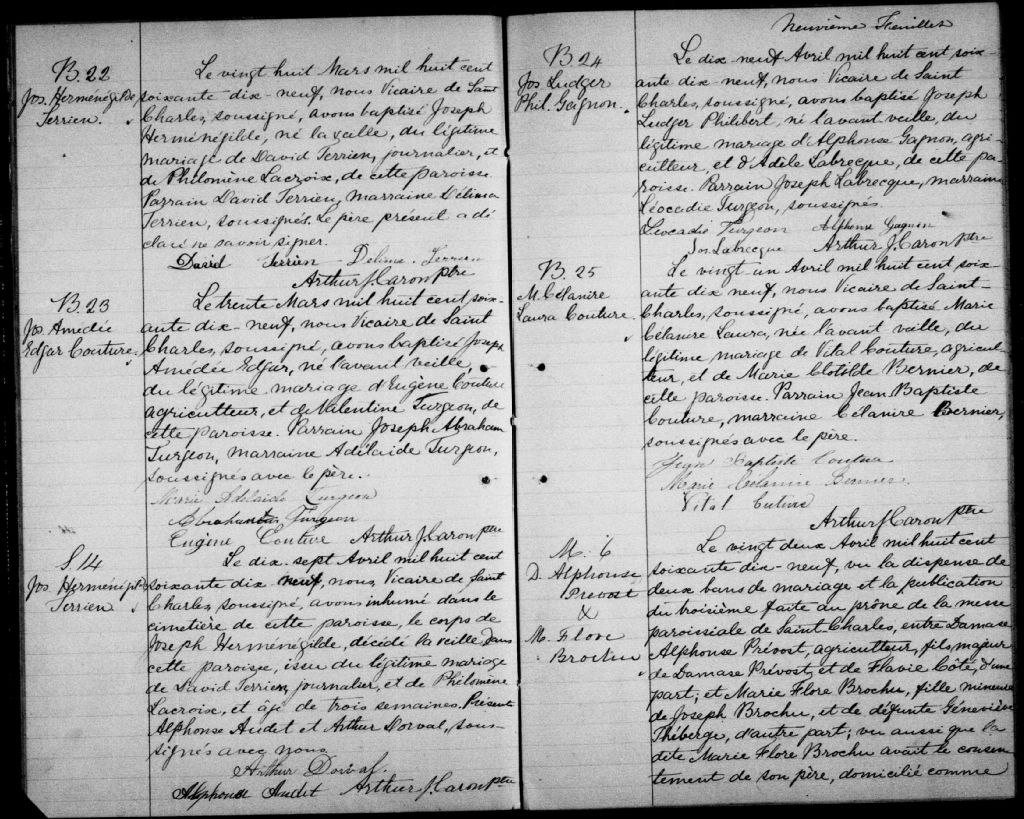 B. 22
Jos. Herménégilde
Terrien.
Le vingt huit Mars mil huit cent
soixante dix-neuf, nous Vicaire de Saint
Charles, soussigné, avons baptisé Joseph
Herménégilde, né la veille, du légitime
mariage de David Terrien, journalier, et
de Philomène Lacroix, de cette paroisse.
Parrain David Terrien, marraine Délima
Terrien, soussignés. Le père présent a dé
claré ne savoir signer.
David Terrien Délima Terrien
Arthur J. Caron ptre
B. 23
Jos. Amedée
Edgar Couture.
Le trente Mars mil huit cent soix-
ante dix-neuf, nous Vicaire de Saint
Charles, soussigné, avons baptizé Joseph
Amedée Edgar, né l'avant veille,
du légitime mariage d'Eugène Couture
agriculteur, et de Valentine Turgeon, de
cette paroisse. Parrain Joseph Abraham
Turgeon, marraine Adélaide Turgeon,
soussignés avec le père.
Marie Adelaide Turgeon
Abraham Turgeon
Eugène Couture Arthur J. Caron ptre
S. 14
Jos. Herménégilde
Terrien
Le dix-sept Avril mil huit cent
soixante dix neuf, nous, Vicaire de Saint
Charles, soussigné, avons inhumé dans le
cimetière de cette paroisse, le corps de
Joseph Herménégilde, décédé la veille dans
cette paroisse, issu du légitime mariage
de David Terrien, journalier, et de Philomène
Lacroix, et âgé de trois semaines. Présent
Alphonse Audet et Arthur Dorval, sous-
signés avec nous
Arthur Dorval.
Alphonse Audet Arthur J. Caron ptre
Neuvième Feuillet
B. 24
Jos Ludger
Phil. Gagnon.
Le dix neuf Avril mil huit cent soix-
ante dix-neuf, nous Vicaire de Saint
Charles, soussigné, avons baptisé Joseph
Ludger Philibert, né l'avant veille, du
légitime mariage d'Alphonse Gagnon, agri-
culteur, et d'Adile Labrecque, de cette pa-
roisse. Parrain Joseph Labrecque, marraine
Léocadie Turgeon, soussignés.
Léocadie Turgeon Alphonse Gagnon
Jos Labrecque Arthur J. Caron ptre
B. 25
M. Célanire
Laura Couture.
Le vingt-un Avril mil huit cent soix-
ante dix neuf, nous Vicaire de Saint-
Charles, soussigné, avons baptisé Marie
Célanire Laura, née l'avant veille, du
légitime mariage de Vital Couture, agricul-
teur, et de Marie Clotilde Bernier, de
cette paroisse. Parrain Jean Baptiste
Couture, marraine Célanire Bernier,
soussignés avec le père.
Jean Baptiste Coutua
Marie Célanire Bernier
Vital Cuture
Arthur J. Caron ptre
M. 6
D. Alphonse
Prévost
X
M. Flore
Brochu
Le vingt deux Avril mil huit cent
soixante dix-neuf, vu la dispense de
deux bans de mariage et la publication
du troisième faite au prône de la messe
paroissiale de Saint-Charles, entre Damase
Alphonse Prévost, agriculteur, fils majeur
de Damase Prévost, et de Flavie Côté, d'une
part; et Marie Flore Brochu, fille mineure
de Joseph Brochu, et de défunte Geneviève
Théberge, d'autre part; vu aussi que la
dite Marie Flore Brochu avait le consen
tement de son père, domicilié comme